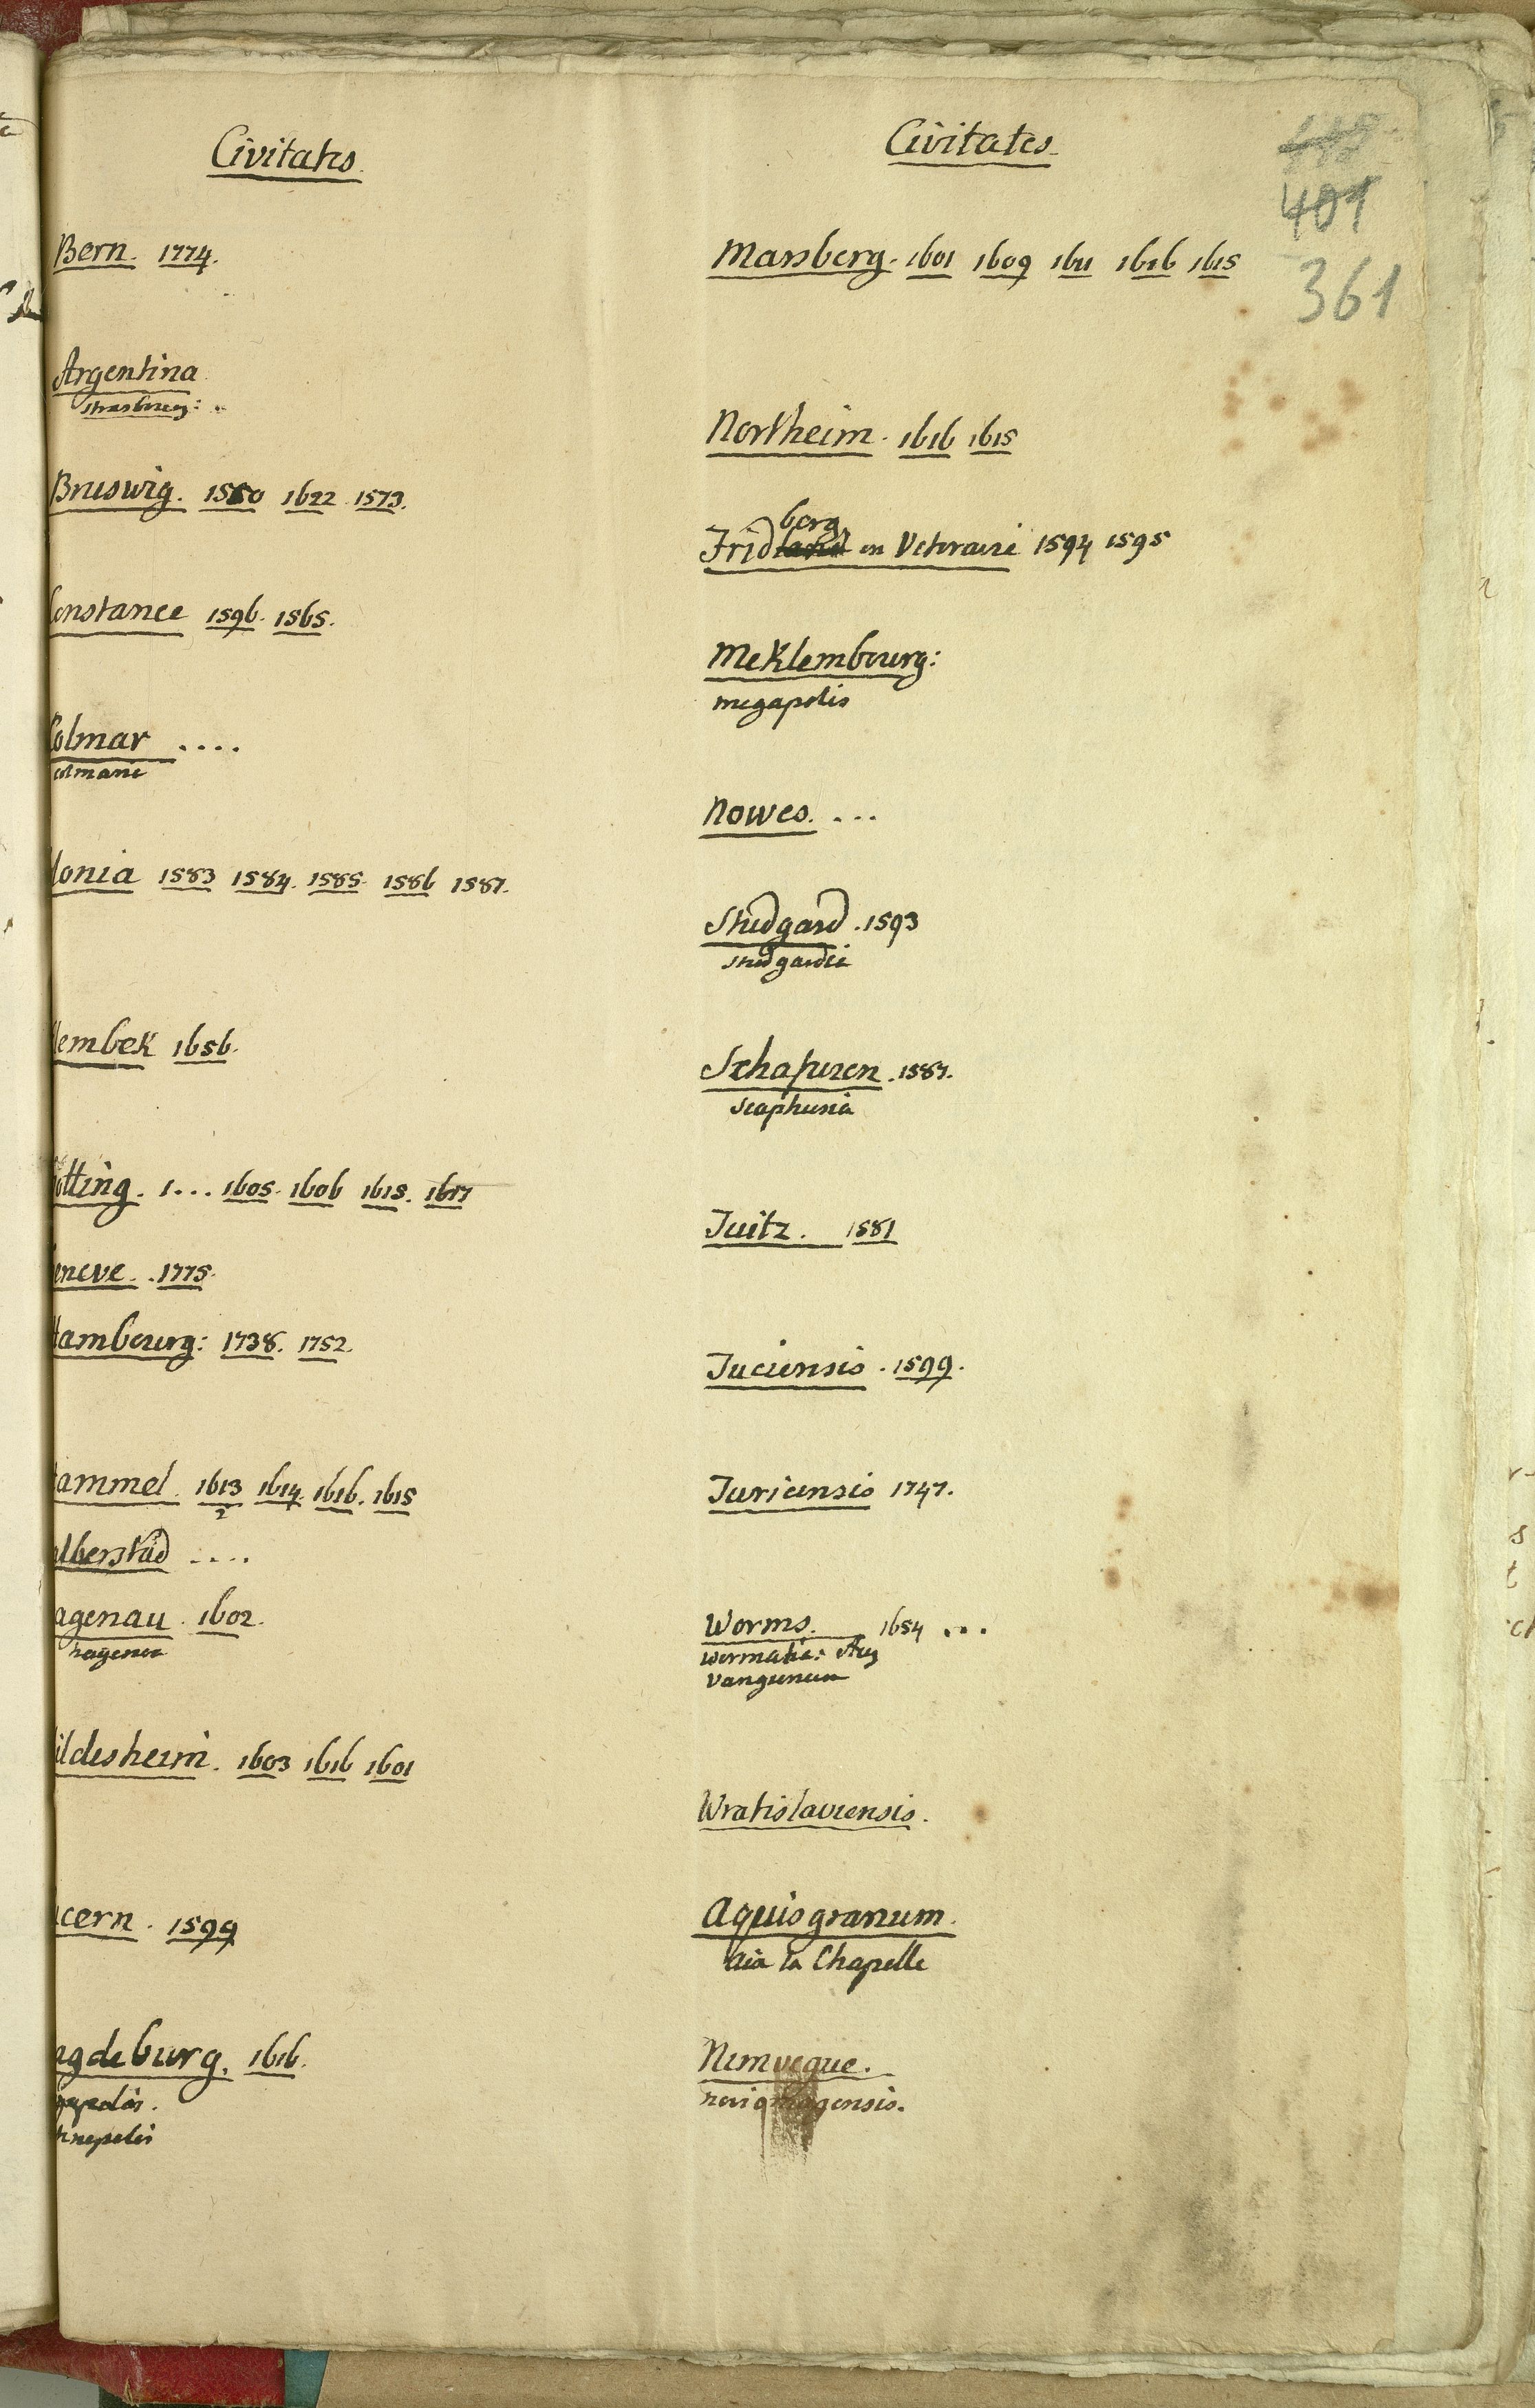 Civitates
Bern. 1774.
Argentina
Strasbourg:
Bruswig. 1550 1622 1573.
Constance 1596. 1565.
Colmar ....
colmarie
lonia 1583 1584. 1585. 1586 1587.
embek 1656.
otting. 1... 1605. 1606 1615. 1617
eneve. 1775.
Hambourg: 1738. 1752.
ammel 1613 1614. 1616. 1615
2
alberstad ....
agenau. 1602.
hagenoa
ildesheim. 1603 1616 1601
cern. 1599
agdeburg. 1616.
Civitates
Mansberg. 1601 1609 1611 1616 1615
Northeim. 1616 1615
berg
Fridland en Veteravie 1594 1595
Meklembourg:
megapolis
Nowes. ...
Studgard. 1593
studgardie
Schafuzen. 1587.
scaphusia
Tuitz. 1581
Tuciensis. 1599.
Turicensis 1747.
Worms. 1654 ...
wormatia: Aug
Vangionum
Wratislaviensis.
Aquisgranum.
Aia la Chapelle
Nimvegue.
noviomagensis.
418
401
361